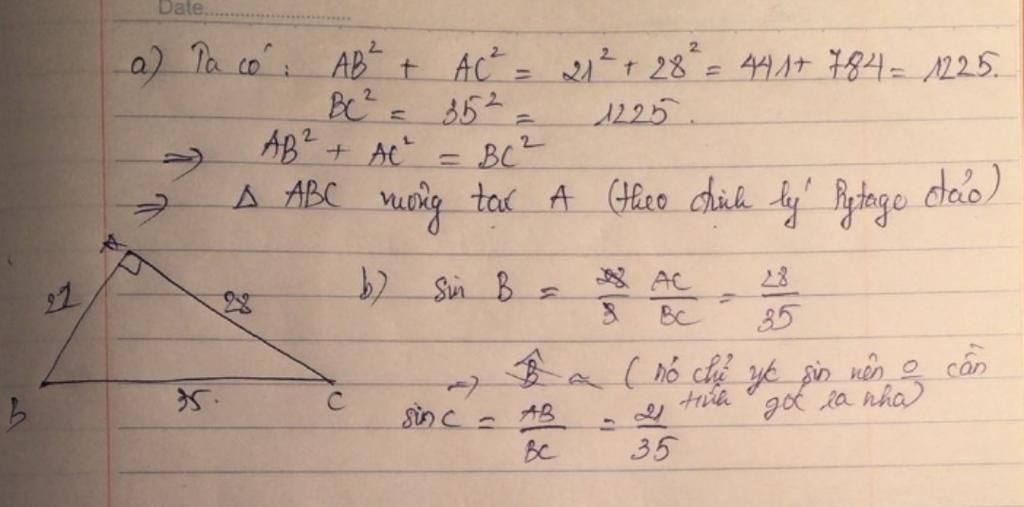 Date
a) Ta có: AB² + AC² = 21² + 28² = 441 + 784 = 1225.
BC² = 35² = 1225.
⇒ AB² + AC² = BC²
⇒ Δ ABC vuông tại A (theo định lý Pytago đảo)
A
21
28
35.
B
C
b) sin B = AC/BC = 28/35
⇒ B̂ ≈ (nó chỉ yc sin nên 0 cần
góc ra nha)
sin C = AB/BC = 21/35